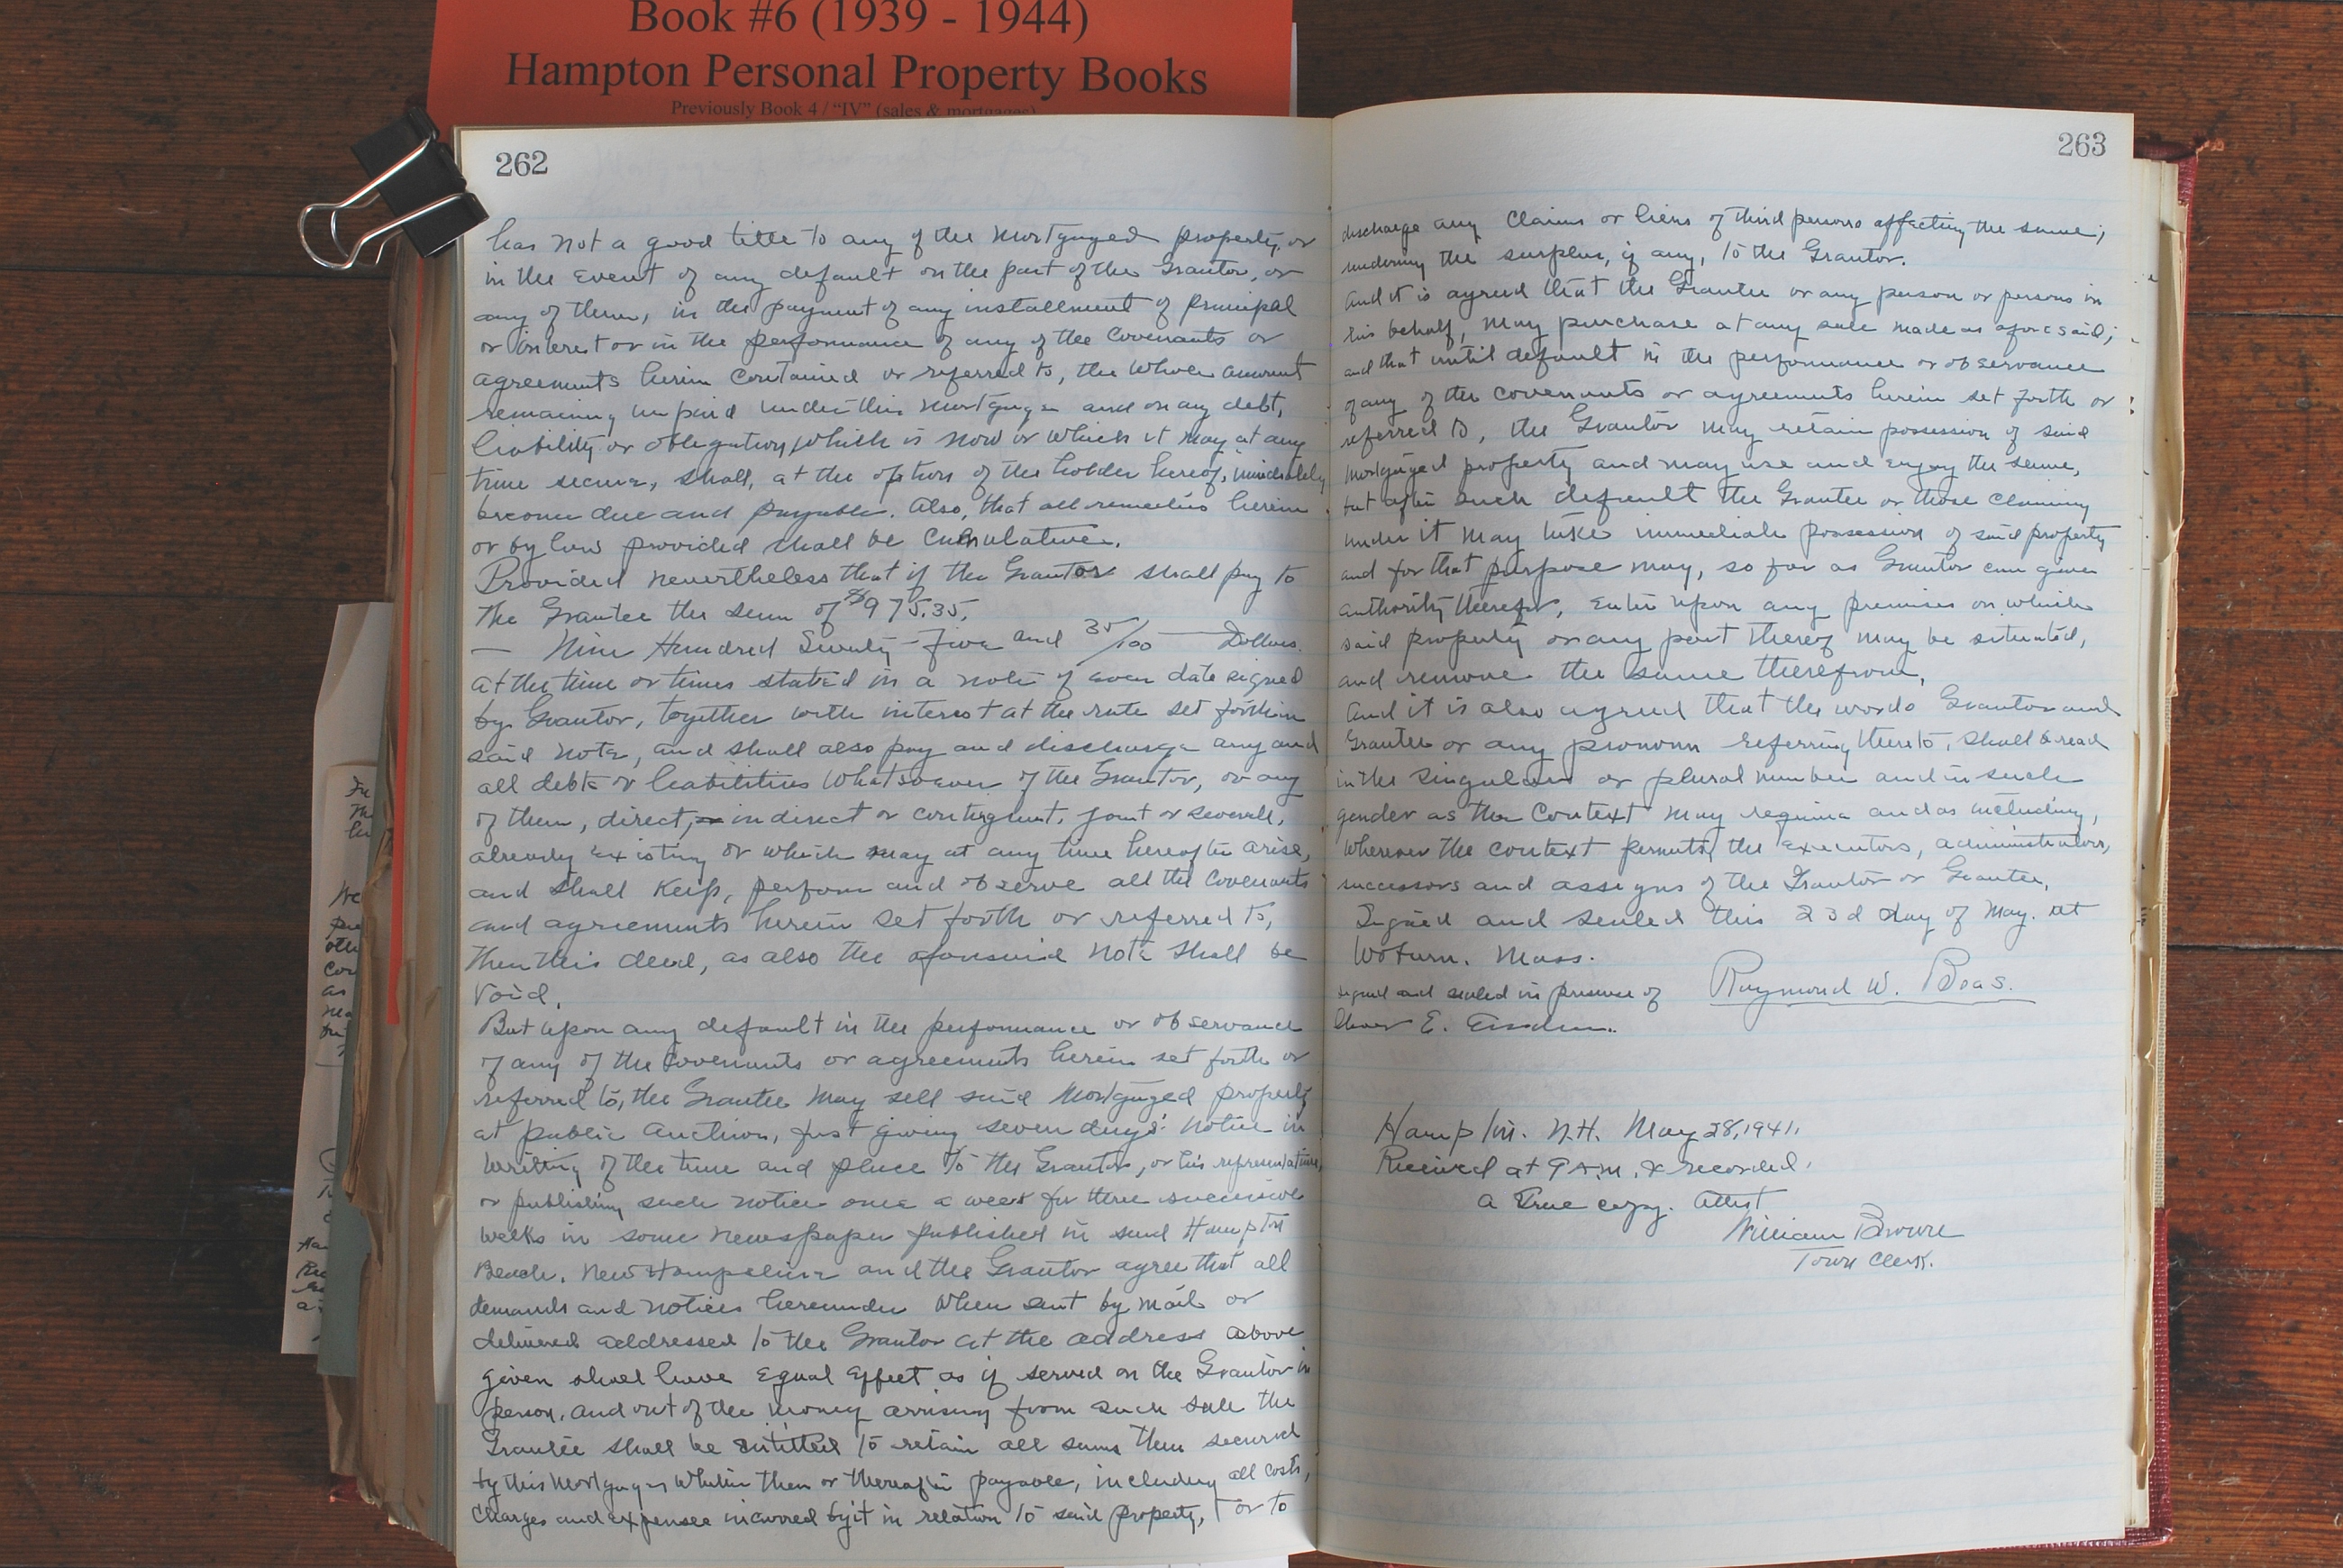 Book #6 (1939 - 1944)
Hampton Personal Property Books
Previously Book 4 / "IV" (sales & mortgages)
262
has not a good title to any of the mortgaged property, or
in the event of any default on the part of the Grantor, or
any of them, in the payment of any installment of principal
or interest or in the performance of any of the Covenants or
agreements herein contained or referred to, the whole amount
remaining unpaid under this mortgage and on any debt,
liability or obligation, which is now or which it may at any
time secure, shall, at the option of the holder hereof, immediately
become due and payable. Also, that all remedies herein
or by law provided shall be cumulative.
Provided nevertheless that if the Grantor shall pay to
the Grantee the sum of $975.35.
— Nine Hundred Seventy-five and 35/100 — Dollars.
at the time or times stated in a note of even date signed
by Grantor, together with interest at the rate set forth in
said note, and shall also pay and discharge any and
all debts or liabilities whatsoever of the Grantor, or any
of them, direct, indirect or contingent, joint or several,
already existing or which may at any time hereafter arise,
and shall keep, perform and observe all the covenants
and agreements herein set forth or referred to,
then this deed, as also the aforesaid note shall be
void.
But upon any default in the performance or observance
of any of the Covenants or agreements herein set forth or
referred to, the Grantee may sell said mortgaged property
at public auction, first giving seven days' notice in
writing of the time and place to the Grantor, or his representative,
or publishing such notice once a week for three successive
weeks in some newspaper published in said Hampton
Beach, New Hampshire and the Grantor agree that all
demands and notices hereunder when sent by mail or
delivered addressed to the Grantor at the address above
given shall have equal effect as if served on the Grantor in
person, and out of the money arising from such sale the
Grantee shall be entitled to retain all sums then secured
by this mortgage whether then or thereafter payable, including all costs,
charges and expenses incurred by it in relation to said property, or to
263
discharge any claims or liens of third persons affecting the same;
rendering the surplus, if any, to the Grantor.
And it is agreed that the Grantee or any person or persons in
his behalf, may purchase at any sale made as aforesaid;
and that until default in the performance or observance
of any of the covenants or agreements herein set forth or
referred to, the Grantor may retain possession of said
mortgaged property and may use and enjoy the same,
but after such default the Grantee or those claiming
under it may take immediate possession of said property
and for that purpose may, so far as Grantor can give
authority therefor, enter upon any premises on which
said property or any part thereof may be situated,
and remove the same therefrom.
And it is also agreed that the words Grantor and
Grantee or any pronoun referring thereto, shall be read
in the singular or plural number and in such
gender as the context may require and as including,
wherever the context permits, the executors, administrators,
successors and assigns of the Grantor or Grantee.
Signed and sealed this 23d day of May. at
Woburn. Mass.
signed and sealed in presence of Raymond W. Boas.
E.
Hampton. N.H. May 28, 1941.
Received at 9 A.M. & recorded.
a True copy. Attest
William Brown
Town Clerk.